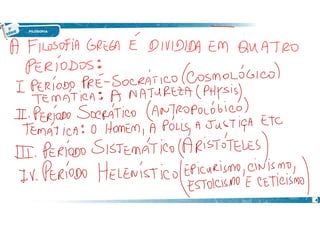 FILOSOFIA
A FILOSOFIA GREGA É DIVIDIDA EM QUATRO
PERÍODOS:
I PERÍODO PRÉ-SOCRÁTICO (COSMOLÓGICO)
TEMÁTICA: A NATUREZA (PHYSIS)
II. PERÍODO SOCRÁTICO (ANTROPOLÓGICO)
TEMÁTICA: O HOMEM, A PÓLIS, A JUSTIÇA ETC
III. PERÍODO SISTEMÁTICO (ARISTÓTELES)
IV. PERÍODO HELENÍSTICO (EPICURISMO, CINISMO,
ESTOICISMO E CETICISMO)